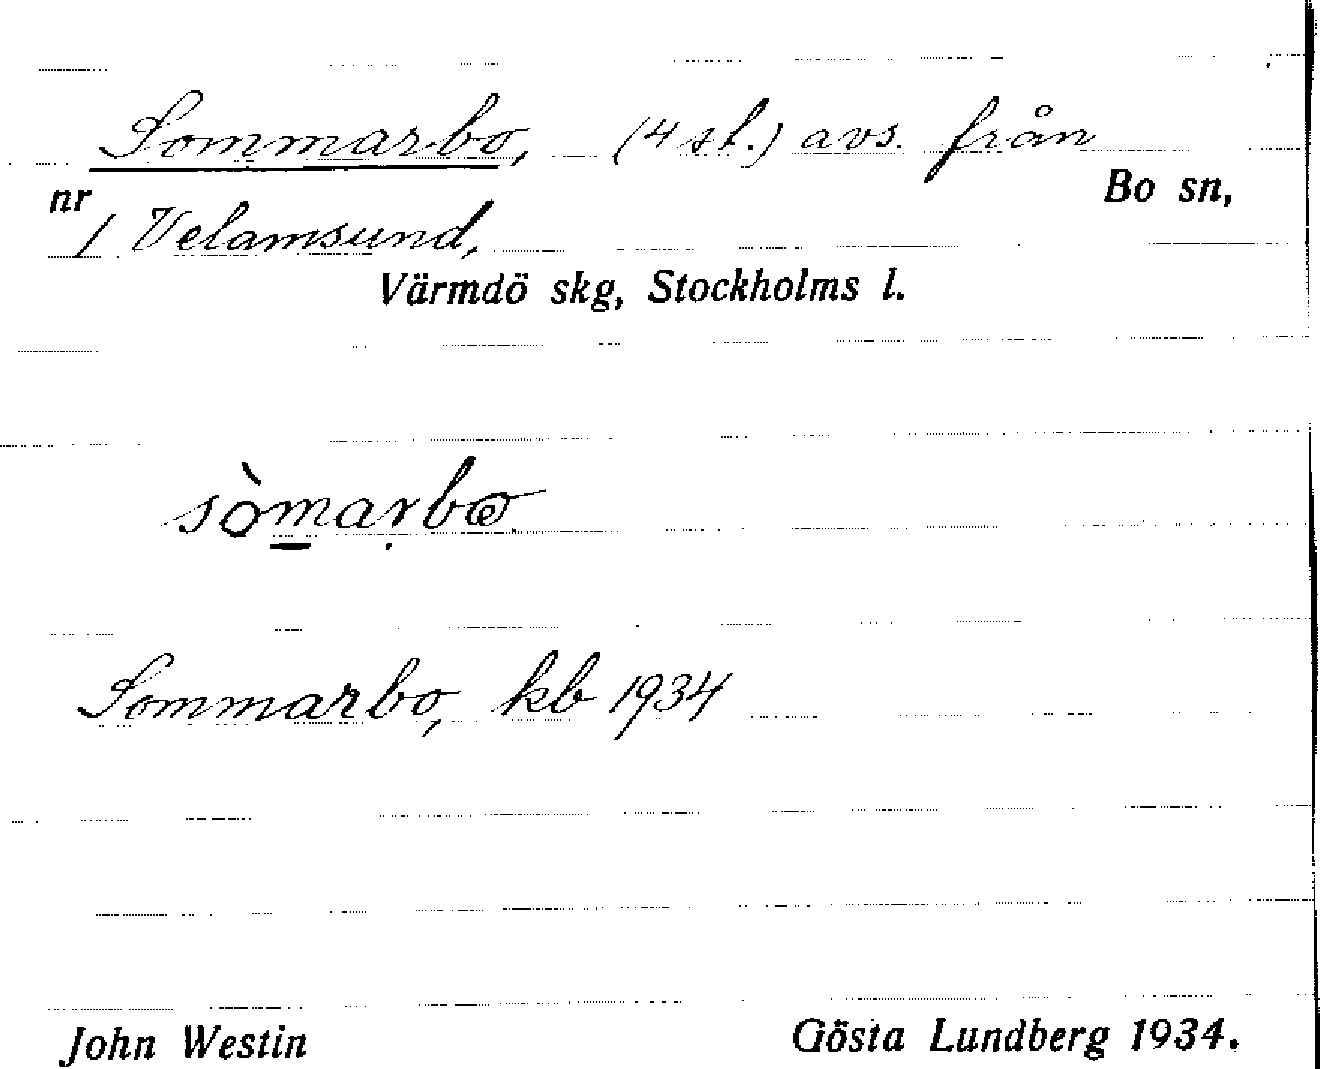 Sommarbo, (4 st.) avs. från
Bo sn,
nr 1 Velamsund,
Värmdö skg, Stockholms l.
sòm̲arbo
Sommarbo, kb 1934
John Westin
Gösta Lundberg 1934.